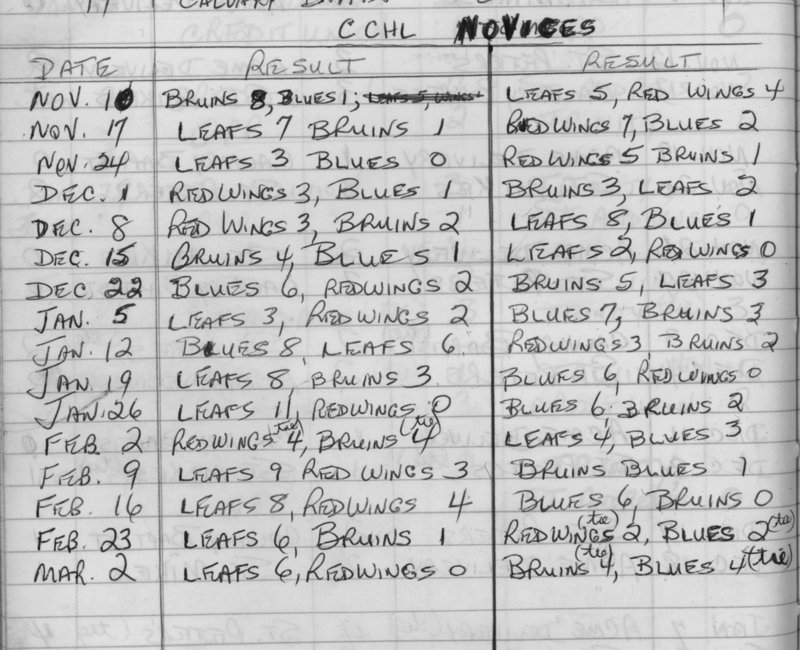 CCHL NOVICES
DATE RESULT RESULT
NOV. 10 BRUINS 8, BLUES 1; LEAFS 5, RED WINGS 4
NOV. 17 LEAFS 7 BRUINS 1 RED WINGS 7, BLUES 2
NOV. 24 LEAFS 3 BLUES 0 RED WINGS 5 BRUINS 1
DEC. 1 REDWINGS 3, BLUES 1 BRUINS 3, LEAFS 2
DEC. 8 RED WINGS 3, BRUINS 2 LEAFS 8, BLUES 1
DEC. 15 BRUINS 4, BLUES 1 LEAFS 2, RED WINGS 0
DEC 22 BLUES 6, REDWINGS 2 BRUINS 5, LEAFS 3
JAN. 5 LEAFS 3, REDWINGS 2 BLUES 7, BRUINS 3
JAN. 12 BLUES 8, LEAFS 6. REDWINGS 3 BRUINS 2
JAN. 19 LEAFS 8, BRUINS 3. BLUES 6, REDWINGS 0
JAN. 26 LEAFS 11, REDWINGS 0 BLUES 6, BRUINS 2
FEB. 2 REDWINGS (tie) 4, BRUINS (tie) 4 LEAFS 4, BLUES 3
FEB. 9 LEAFS 9 RED WINGS 3 BRUINS BLUES 1
FEB. 16 LEAFS 8, REDWINGS 4 BLUES 6, BRUINS 0
FEB. 23 LEAFS 6, BRUINS 1 REDWINGS (tie) 2, BLUES 2 (tie)
MAR. 2 LEAFS 6, REDWINGS 0 BRUINS (tie) 4, BLUES 4 (tie)